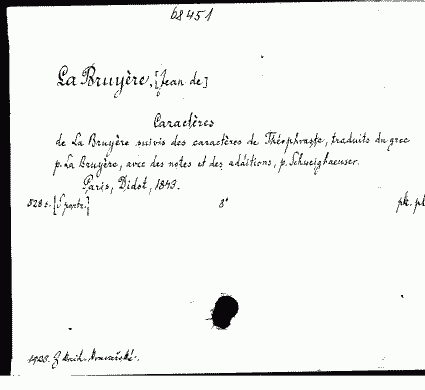 68451
La Bruyère, [Jean de]
Caractères
de La Bruyère suivis des caractères de Théophraste, traduits du grec
p. La Bruyère, avec des notes et des additions, p. Schweighaeuser.
Paris, Didot, 1843.
528 s. [1 portr.] 8° pk. pl
1923. Z knih.